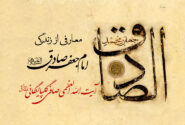 جعفر بن محمد
الصادق
معارفی از زندگی
امام جعفر صادق
آیت الله العظمی صافی گلپایگانی